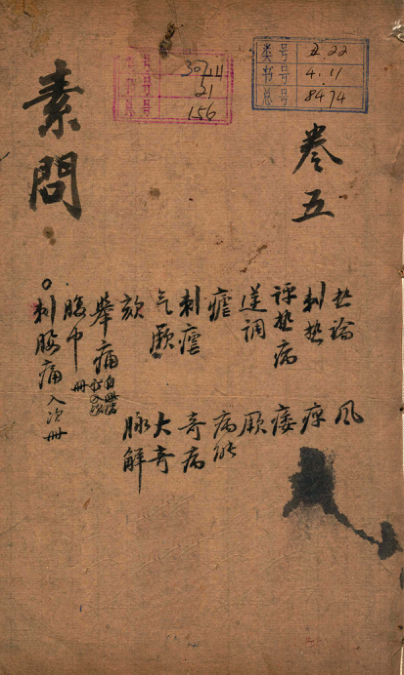 类号
书号 4.11
总号 8474
号
号 21
总号 156
卷五
热論 風
刺热 痹
評热病 痿
逆调 厥
瘧 病能
刺瘧 奇病
气厥 大奇
欬 脉解
舉痛
腹中
刺腰痛入次冊
素問